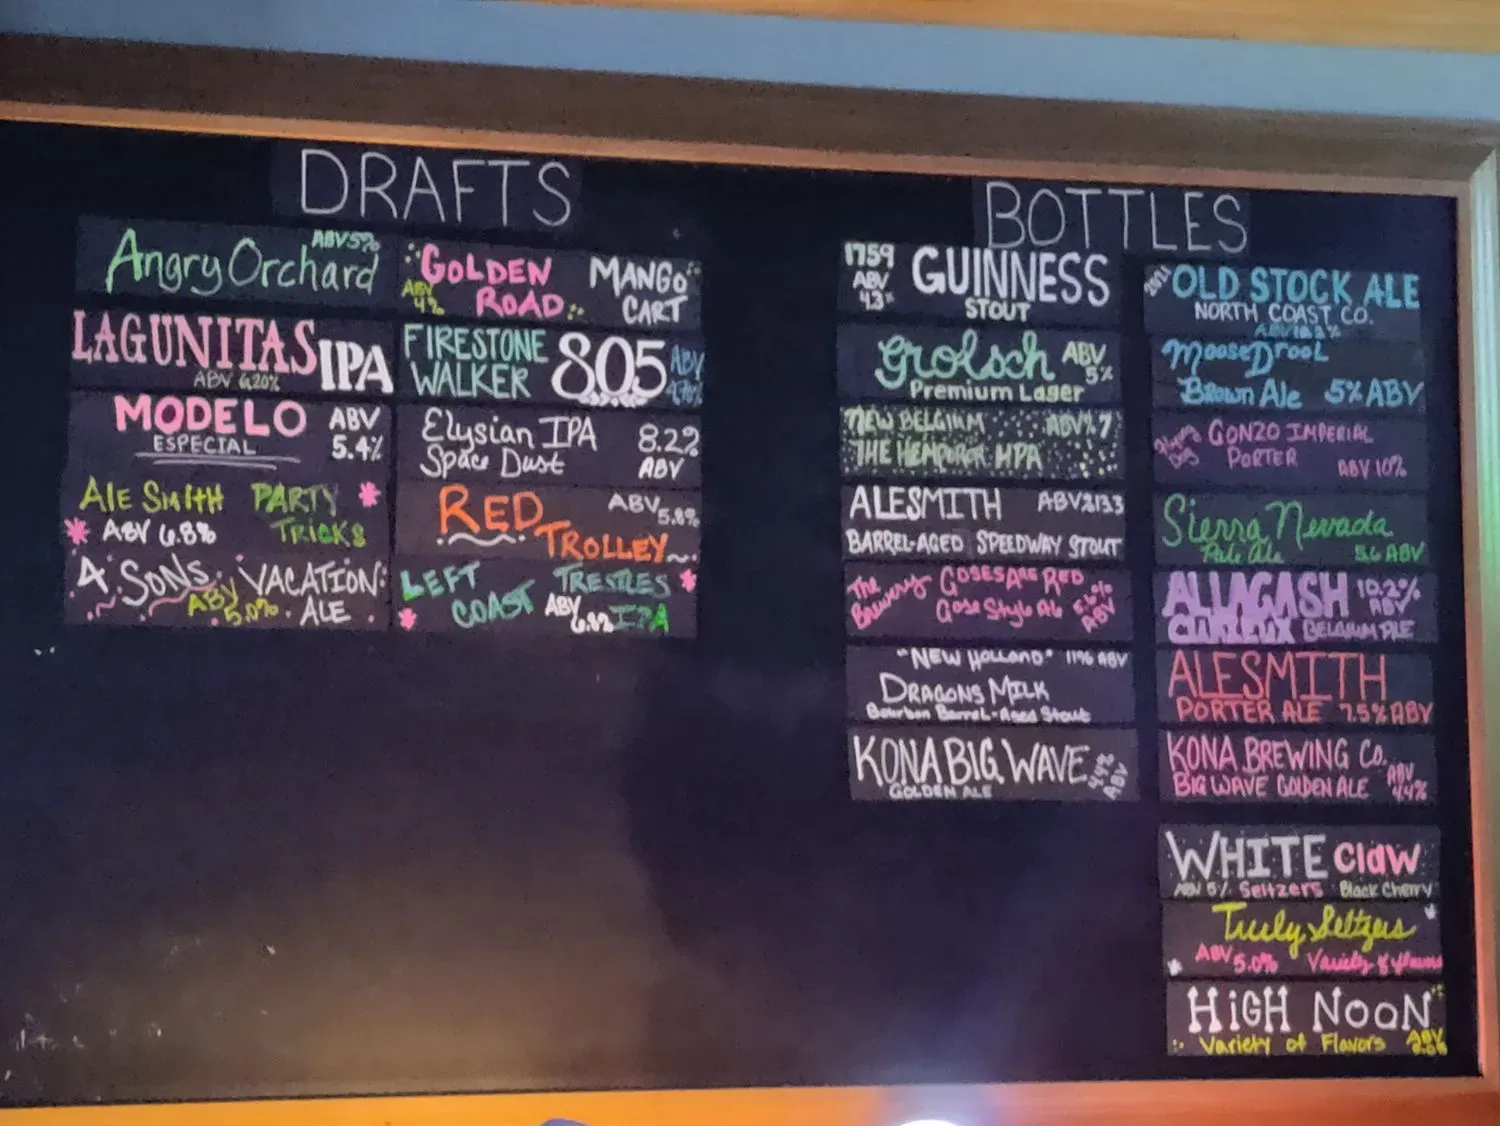 DRAFTS
Angry Orchard ABV 5%
LAGUNITAS IPA
ABV 6.20%
MODELO ABV
ESPECIAL 5.4%
Ale Smith PARTY
ABV 6.8% TRICKS
4 SONS VACATION
ABV 5.0% ALE
GOLDEN MANGO
ABV 4% ROAD CART
FIRESTONE 805 ABV
WALKER
Elysian IPA 8.2%
Space Dust ABV
RED ABV 5.8%
TROLLEY
LEFT TRESTLES
COAST ABV IPA
BOTTLES
1759 GUINNESS
ABV STOUT
4.3%
Grolsch ABV
Premium Lager 5%
NEW BELGIUM ABV 7
THE HEMPEROR HPA
ALESMITH ABV
BARREL-AGED SPEEDWAY STOUT
The GOSES ARE RED
Brewery Gose Style Ale ABV
"NEW HOLLAND" 11% ABV
DRAGONS MILK
Bourbon Barrel-Aged Stout
KONA BIG WAVE 4.4%
GOLDEN ALE ABV
2021 OLD STOCK ALE
NORTH COAST CO.
MOOSE DROOL
BROWN ALE 5% ABV
Flying GONZO IMPERIAL
Dog PORTER ABV 10%
Sierra Nevada
Pale Ale 5.6 ABV
ALLAGASH 10.2%
ABV
CURIEUX BELGIUM ALE
ALESMITH
PORTER ALE 7.5% ABV
KONA BREWING CO.
BIG WAVE GOLDEN ALE ABV 4.4%
WHITE Claw
ABV 5% Seltzers Black Cherry
Truly Seltzers
ABV 5.0% Variety of flavors
HIGH NOON
Variety of Flavors ABV